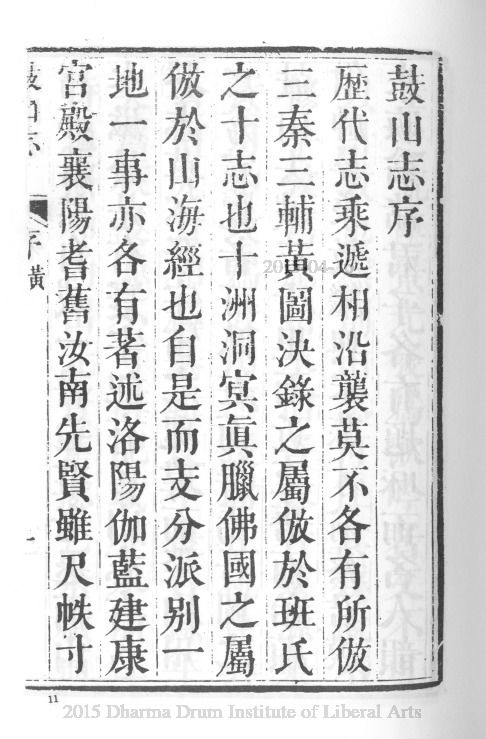 鼓山志序
歷代志乘遞相沿襲莫不各有所倣
三秦三輔黃圖決錄之屬倣於班氏
之十志也十洲洞冥眞臘佛國之屬
倣於山海經也自是而支分派別一
地一事亦各有著述洛陽伽藍建康
宮殿襄陽耆舊汝南先賢雖尺帙寸
序 黃
一
11
2015 Dharma Drum Institute of Liberal Arts